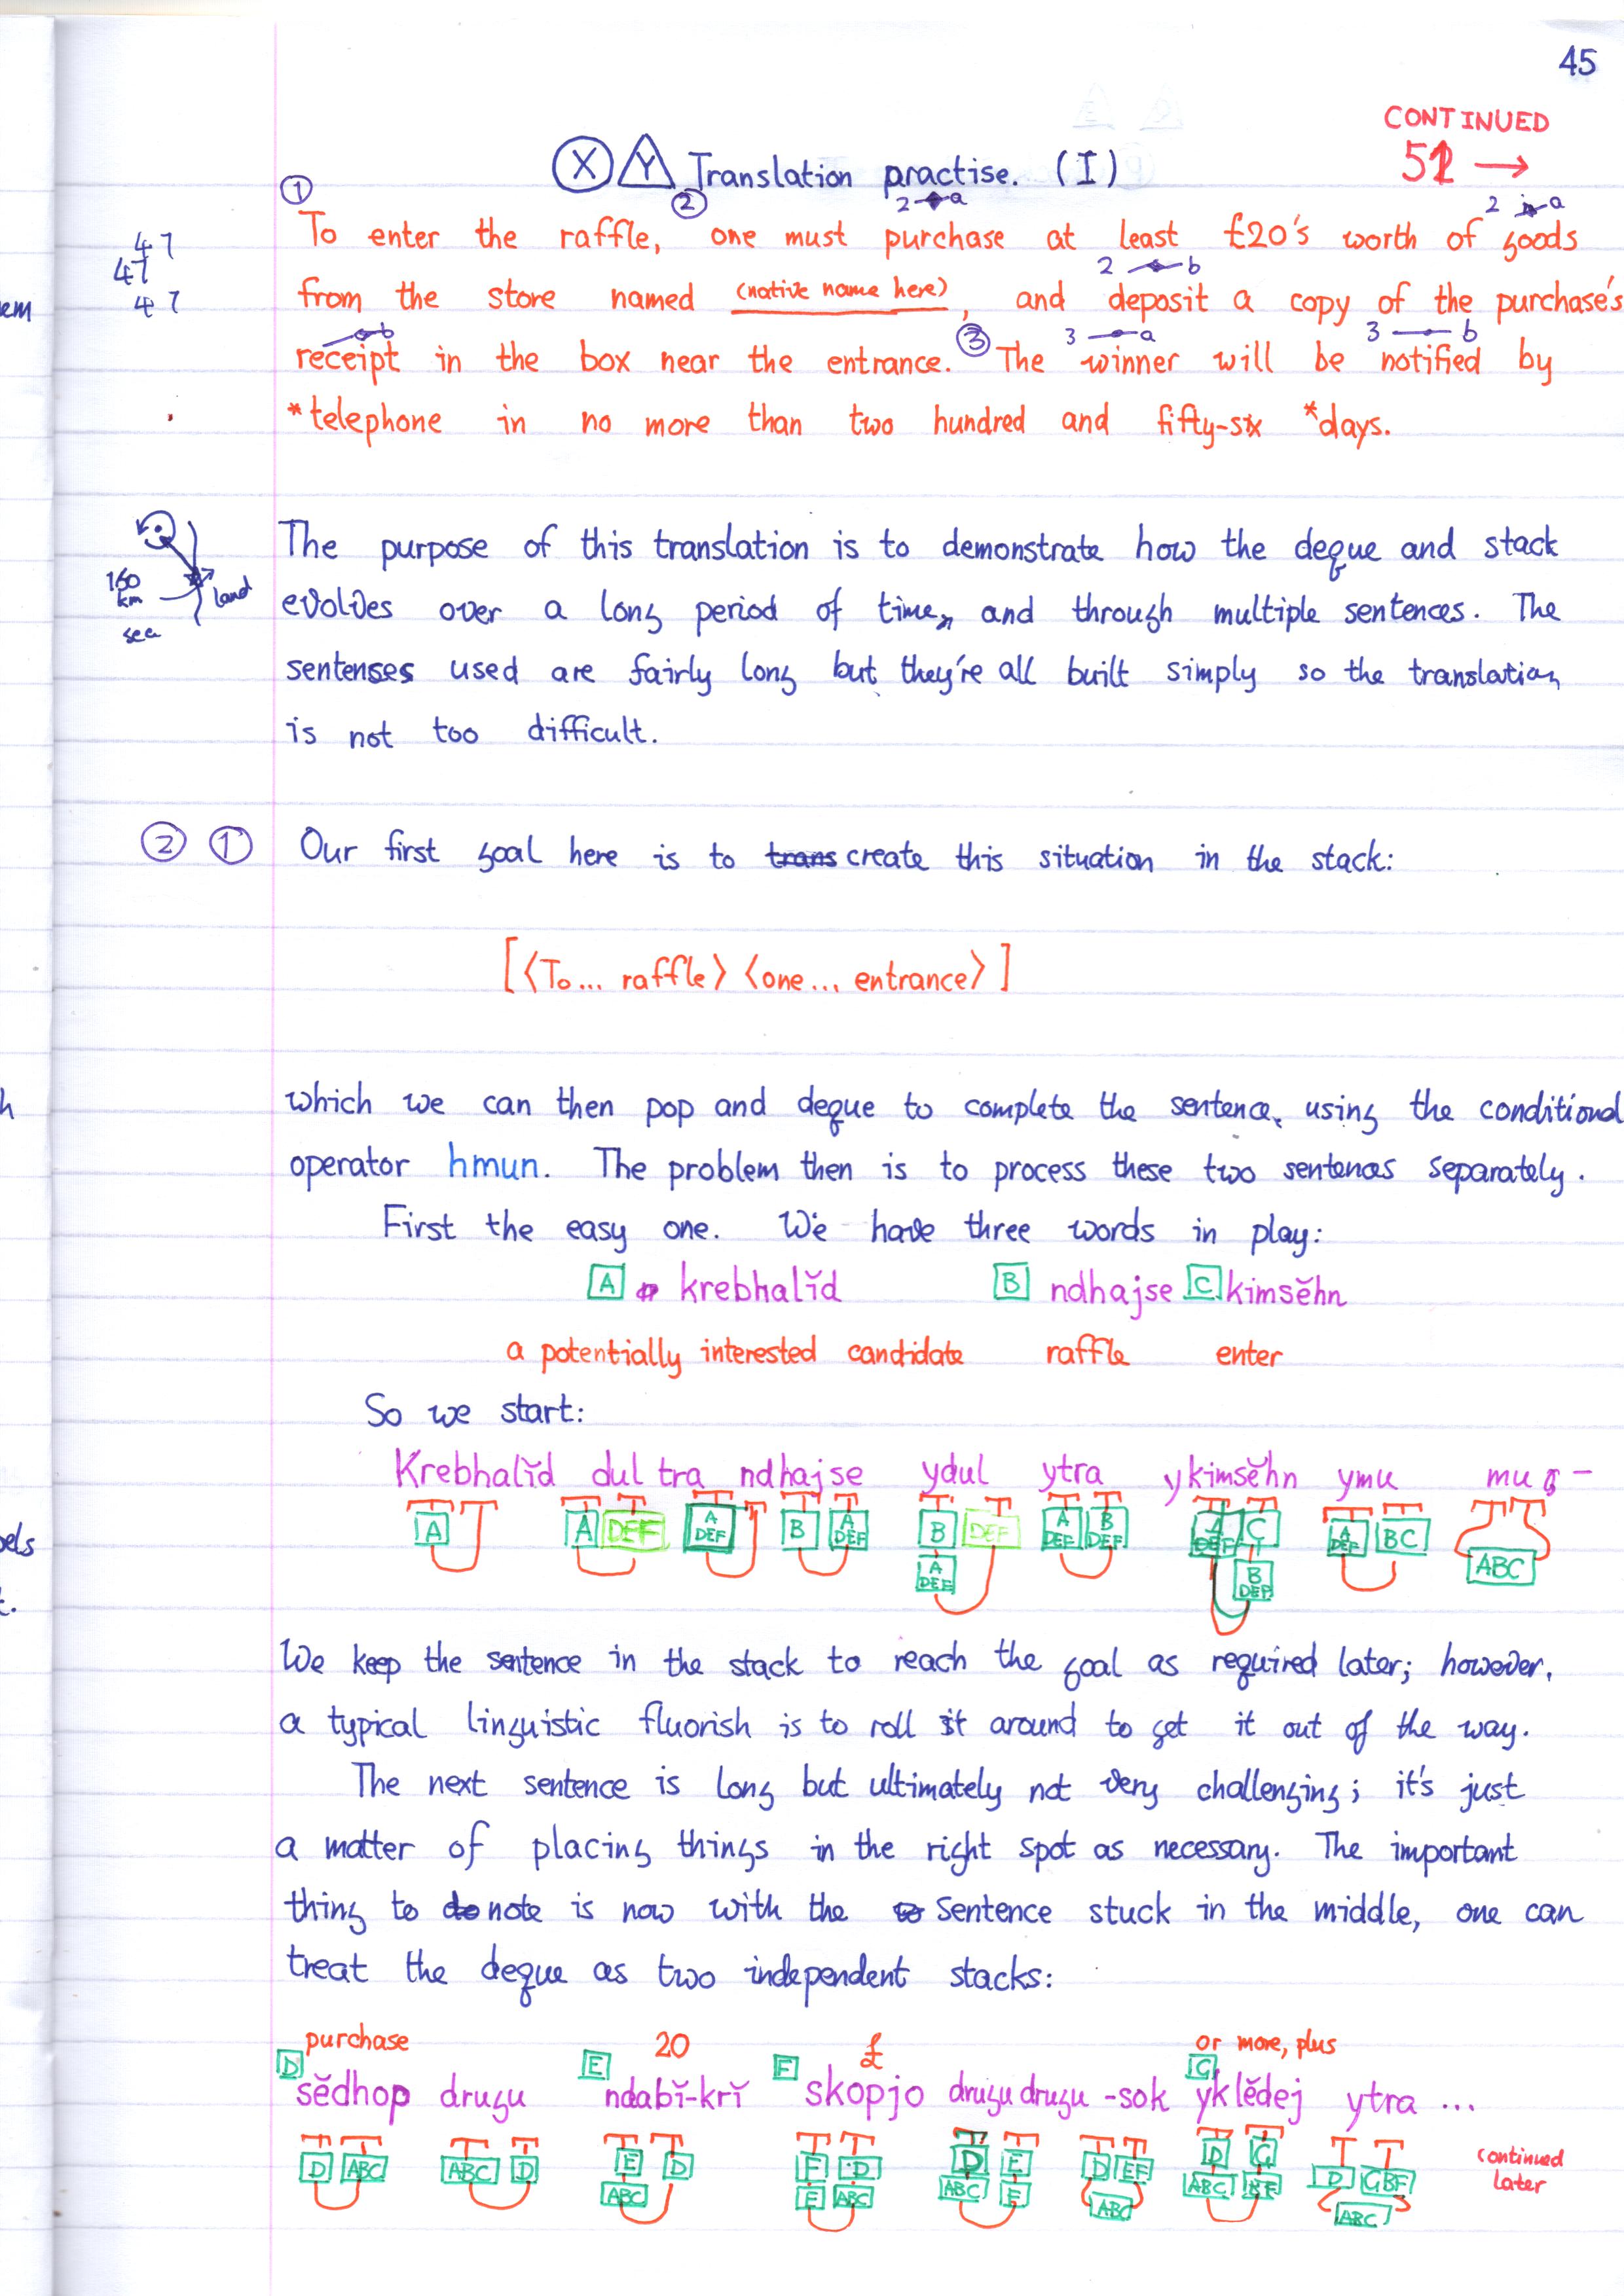 45
CONTINUED
51 →
X Y Translation practise. (I)
① ② 2 a 2 a
To enter the raffle, one must purchase at least £20's worth of goods
2 b
from the store named (native name here), and deposit a copy of the purchase's
b ③ 3 a 3 b
receipt in the box near the entrance. The winner will be notified by
*telephone in no more than two hundred and fifty-six *days.
47
47
47
em
The purpose of this translation is to demonstrate how the deque and stack
160
km
land
sea
evolves over a long period of time, and through multiple sentences. The
sentenses used are fairly long but they're all built simply so the translation
is not too difficult.
② ① Our first goal here is to trans create this situation in the stack:
[⟨To... raffle⟩ ⟨one... entrance⟩]
h
which we can then pop and deque to complete the sentence, using the conditional
operator hmun. The problem then is to process these two sentences separately.
First the easy one. We have three words in play:
A krebhalĭd B ndhajse C kimsĕhn
a potentially interested candidate raffle enter
So we start:
Krebhalĭd dul tra ndhajse ydul ytra ykimsĕhn ymu mu -
A A DEF A DEF B A DEF B DEF A DEF B DEF C A DEF BC
A DEF B DEF ABC
els
t.
We keep the sentence in the stack to reach the goal as required later; however,
a typical linguistic fluorish is to roll it around to get it out of the way.
The next sentence is long but ultimately not very challenging; it's just
a matter of placing things in the right spot as necessary. The important
thing to do note is now with the sentence stuck in the middle, one can
treat the deque as two independent stacks:
purchase 20 £ or more, plus
D E F G
sĕdhop drugu ndabĭ-krĭ skopjo drugu drugu -sok yklĕdej ytra ...
D ABC ABC D E D F D D E D EF D G D GBF
ABC E ABC ABC F ABC ABC BF ABC
continued
later